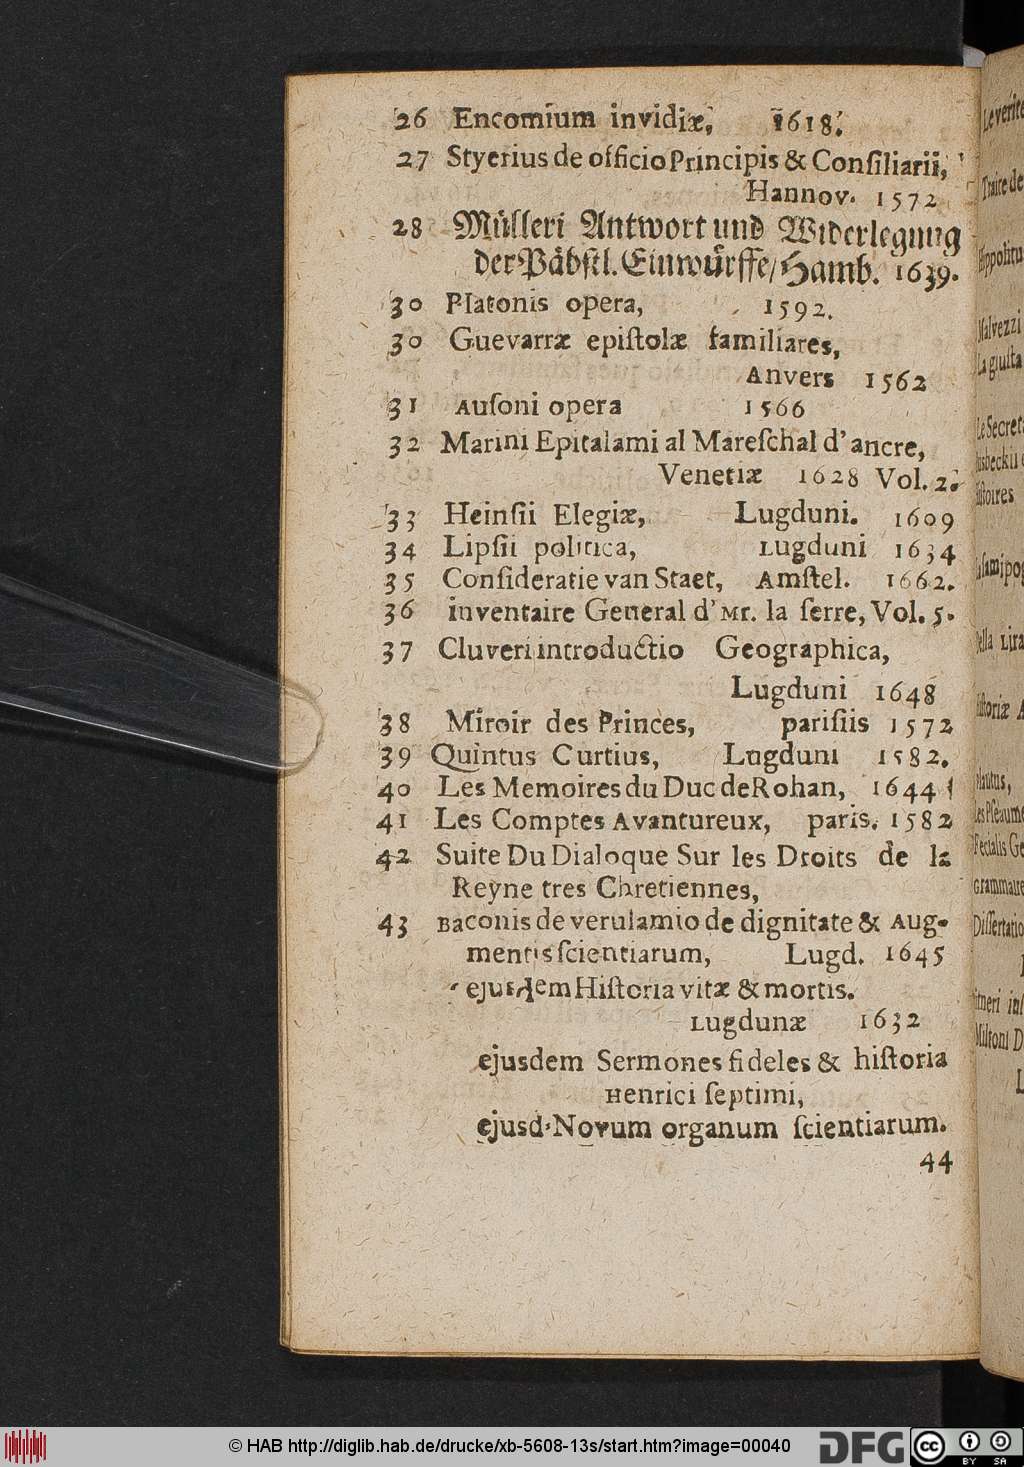 26 Encomium invidiæ, 1618.
27 Styerius de officio Principis & Conſiliarii,
Hannov. 1572
28 Mülleri Antwort und Widerlegung
der Päbſtl. Einwürffe / Hamb. 1639.
30 Platonis opera, 1592.
30 Guevarræ epiſtolæ familiares,
Anvers 1562
31 Auſoni opera 1566
32 Marini Epitalami al Mareſchal d'ancre,
Venetiæ 1628 Vol. 2.
33 Heinſii Elegiæ, Lugduni. 1609
34 Lipſii politica, Lugduni 1634
35 Conſideratie van Staet, Amſtel. 1662.
36 inventaire General d'Mr. la ſerre, Vol. 5.
37 Cluveri introductio Geographica,
Lugduni 1648
38 Miroir des Princes, pariſiis 1572
39 Quintus Curtius, Lugduni 1582.
40 Les Memoires du Duc de Rohan, 1644
41 Les Comptes Avantureux, paris. 1582
42 Suite Du Dialoque Sur les Droits de la
Reyne tres Chretiennes,
43 Baconis de verulamio de dignitate & Aug-
mentis ſcientiarum, Lugd. 1645
ejusdem Hiſtoria vitæ & mortis.
Lugdunæ 1632
ejusdem Sermones fideles & hiſtoria
Henrici ſeptimi,
ejusd. Novum organum ſcientiarum.
44
Le verite
Traite de
Malvezzi
La giuſta
Le Secret
Della Lira
Plautus,
Les Pſeaume
Fecialis Ge
Grammaire
Diſſertatio
Miltoni D
© HAB http://diglib.hab.de/drucke/xb-5608-13s/start.htm?image=00040
DFG
CC BY SA